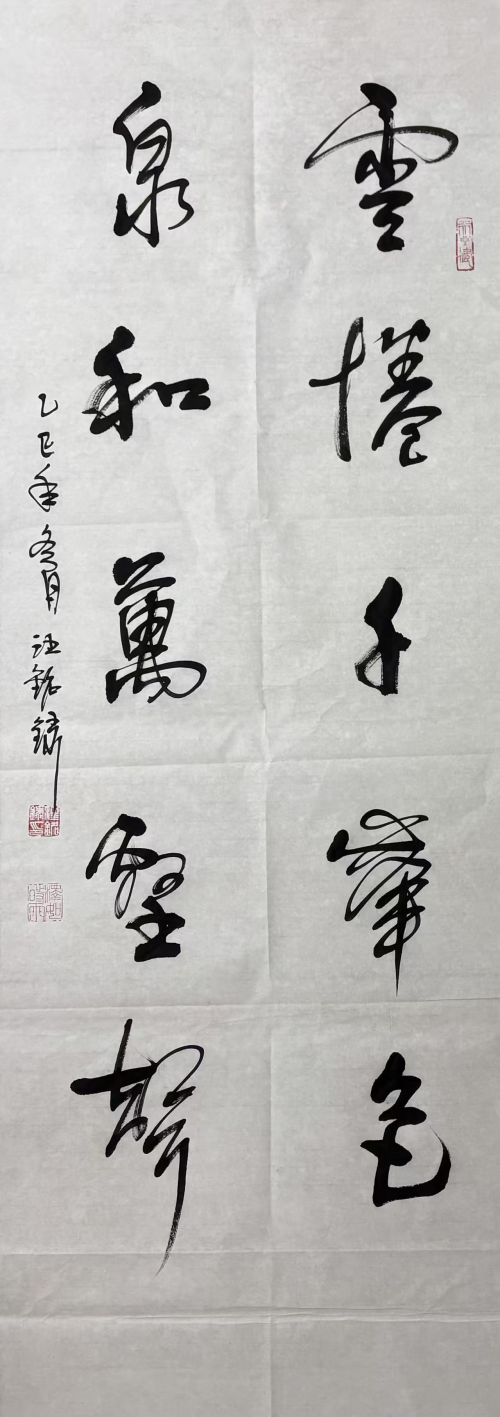 雲捲千峯色
泉和萬壑聲
乙巳年冬月 汪銘鏽